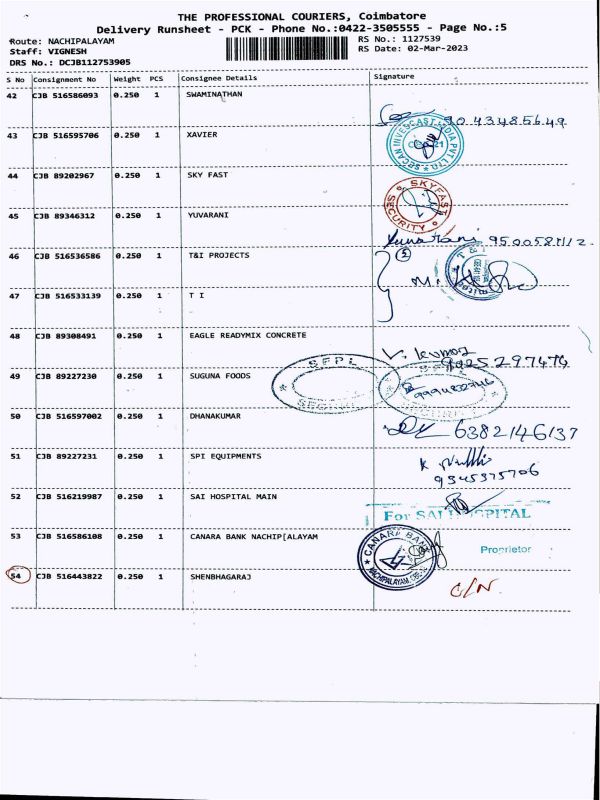 THE PROFESSIONAL COURIERS, Coimbatore
Delivery Runsheet - PCK - Phone No.:0422-3505555 - Page No.:5
Route: NACHIPALAYAM
RS No.: 1127539
Staff: VIGNESH
RS Date: 02-Mar-2023
DRS No.: DCJB112753905
S No Consignment No Weight PCS Consignee Details Signature
42 CJB 516586093 0.250 1 SWAMINATHAN
9043485649
43 CJB 516595706 0.250 1 XAVIER
44 CJB 89202967 0.250 1 SKY FAST
SKYFAST SECURITY
45 CJB 89346312 0.250 1 YUVARANI
Yuvarani
46 CJB 516536586 0.250 1 T&I PROJECTS
2
47 CJB 516533139 0.250 1 T I
48 CJB 89308491 0.250 1 EAGLE READYMIX CONCRETE
V. kumar
9825297474
SFPL
49 CJB 89227230 0.250 1 SUGUNA FOODS
50 CJB 516597002 0.250 1 DHANAKUMAR
6382146137
51 CJB 89227231 0.250 1 SPI EQUIPMENTS
9345375706
52 CJB 516219987 0.250 1 SAI HOSPITAL MAIN
For SAI HOSPITAL
53 CJB 516586108 0.250 1 CANARA BANK NACHIP[ALAYAM
CANARA BANK
Proprietor
54 CJB 516443822 0.250 1 SHENBHAGARAJ
C/N